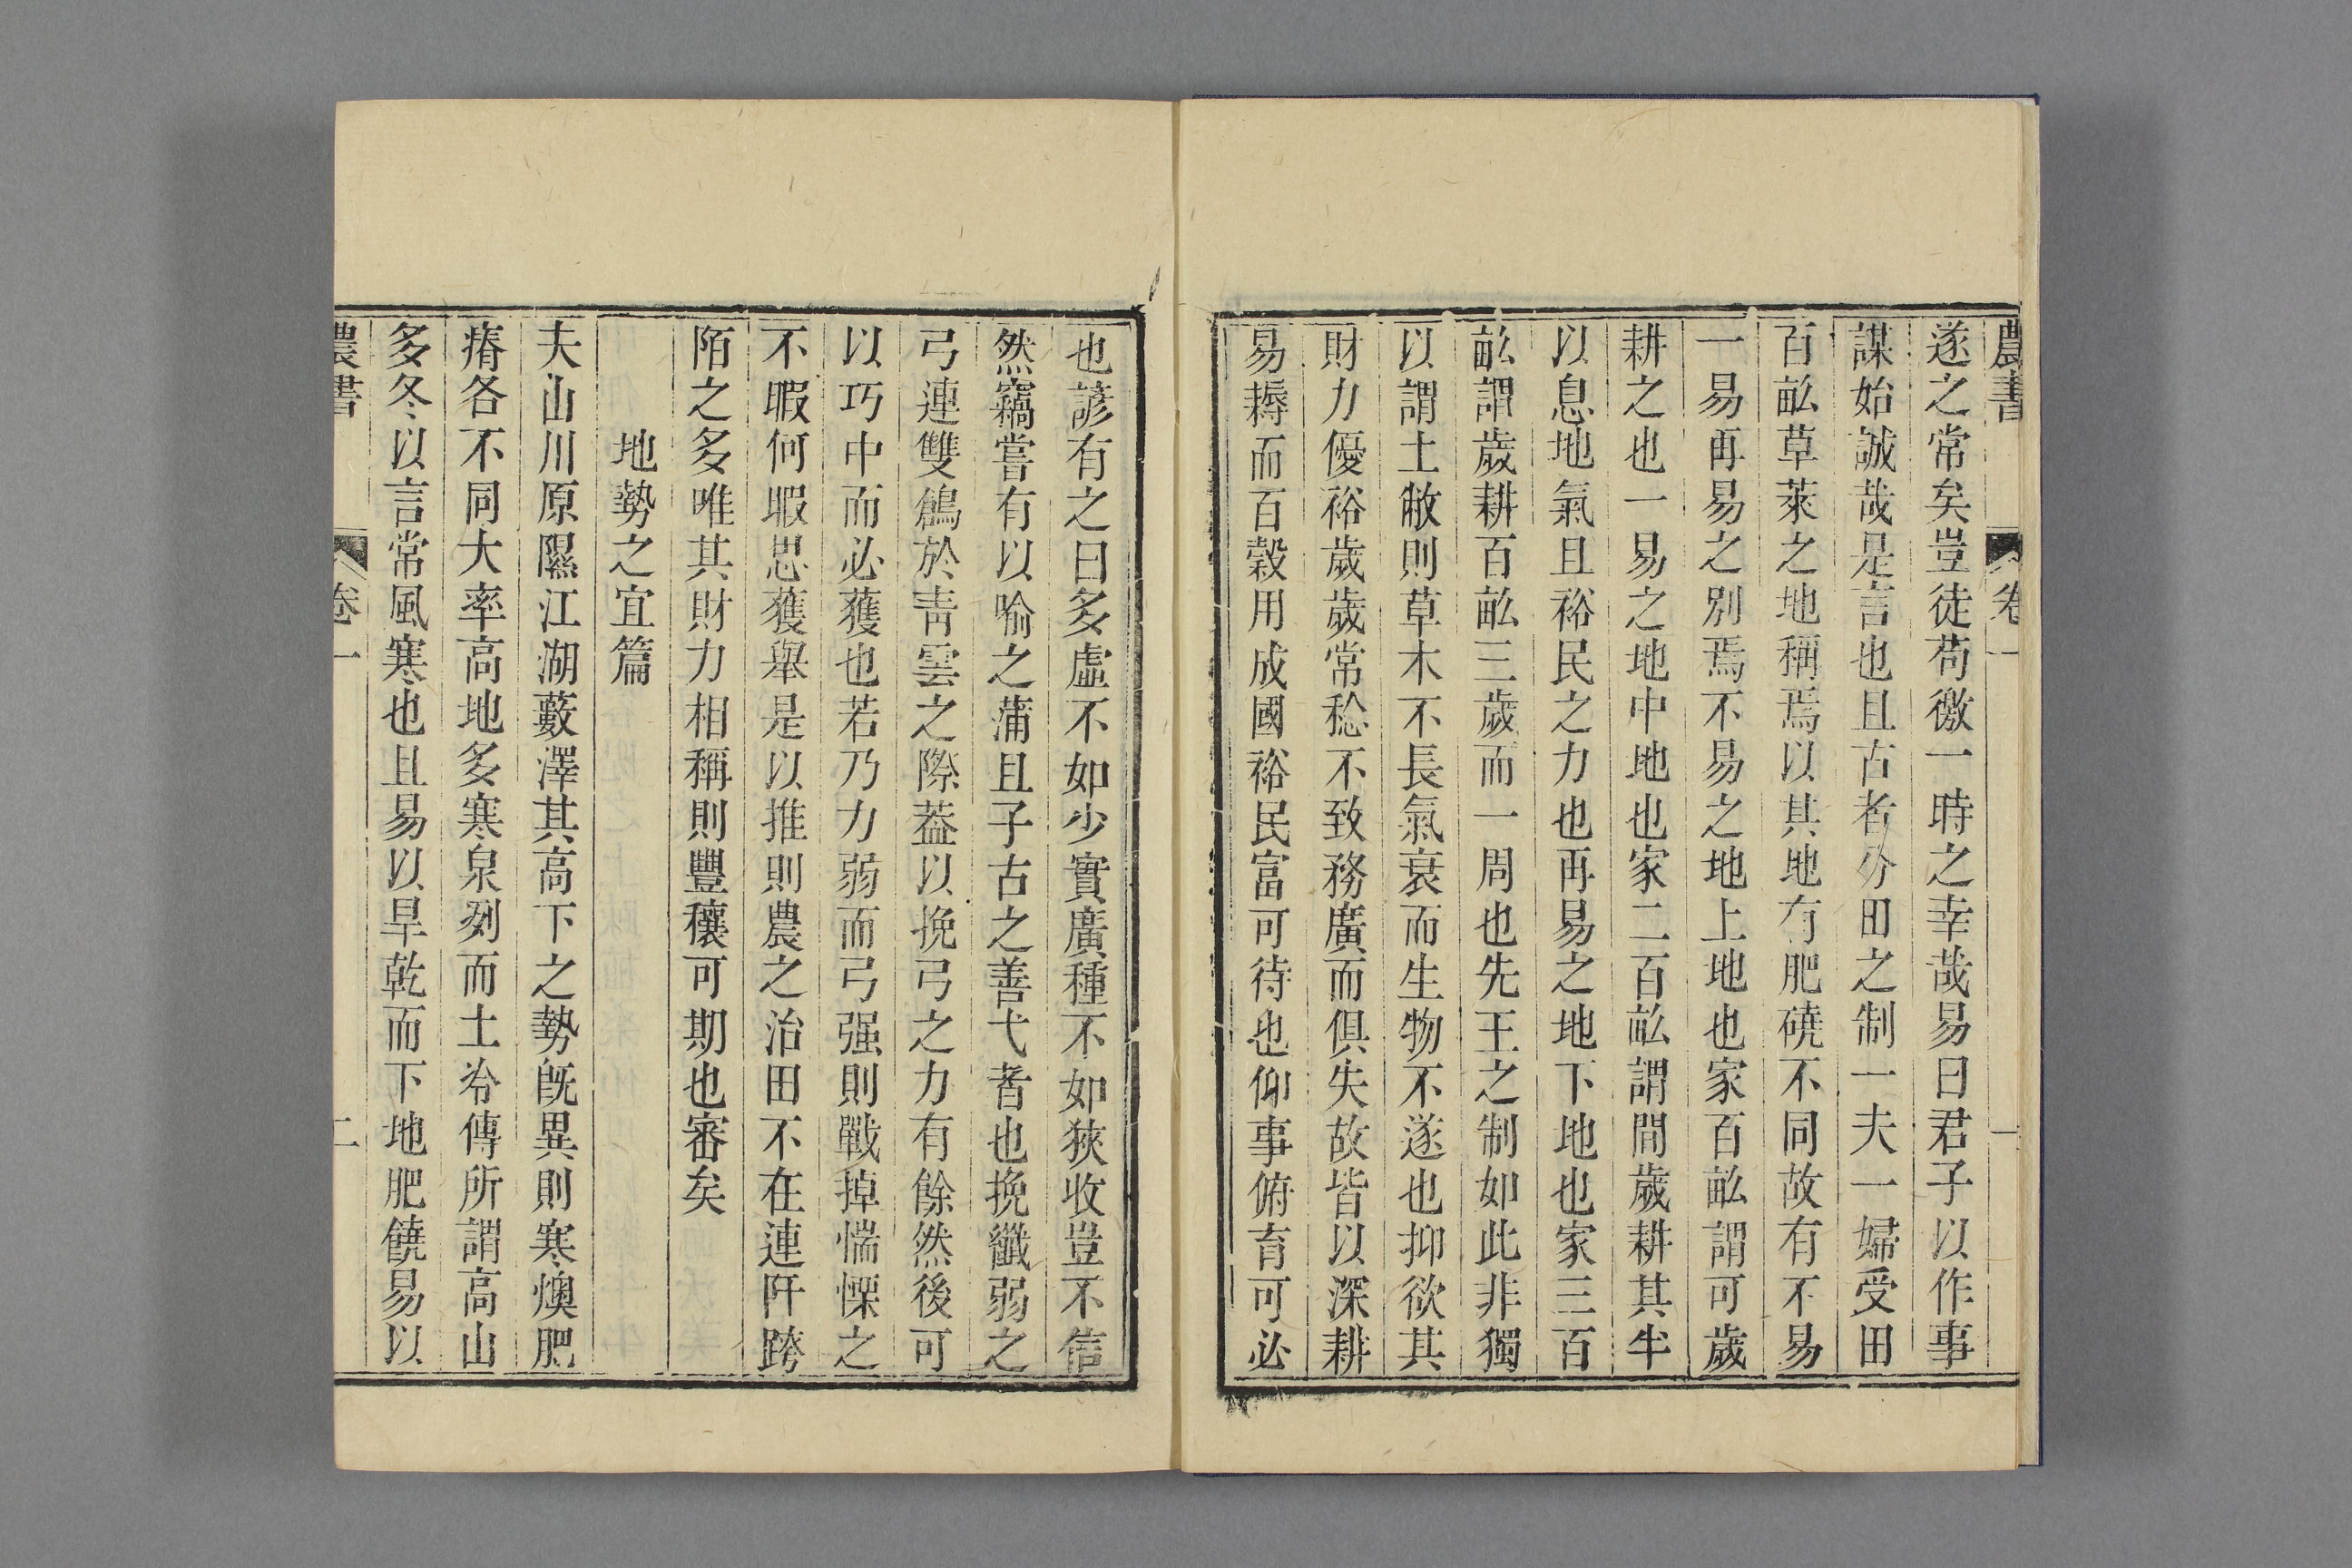 農書 卷一 一
遂之常矣豈徒苟徼一時之幸哉易曰君子以作事
謀始誠哉是言也且古者分田之制一夫一婦受田
百畝草萊之地稱焉以其地有肥磽不同故有不易
一易再易之別焉不易之地上地也家百畝謂可歲
耕之也一易之地中地也家二百畝謂間歲耕其半
以息地氣且裕民之力也再易之地下地也家三百
畝謂歲耕百畝三歲而一周也先王之制如此非獨
以謂土敝則草木不長氣衰而生物不遂也抑欲其
財力優裕歲歲常稔不致務廣而俱失故皆以深耕
易耨而百穀用成國裕民富可待也仰事俯育可必
也諺有之曰多虛不如少實廣種不如狹收豈不信
然竊嘗有以喻之蒲且子古之善弋者也挽纖弱之
弓連雙鶬於靑雲之際葢以挽弓之力有餘然後可
以巧中而必獲也若乃力弱而弓强則戰掉惴慄之
不暇何暇思獲舉是以推則農之治田不在連阡跨
陌之多唯其財力相稱則豐穰可期也審矣
地勢之宜篇
夫山川原隰江湖藪澤其高下之勢旣異則寒燠肥
瘠各不同大率高地多寒泉冽而土冷傳所謂高山
多冬以言常風寒也且易以旱乾而下地肥饒易以
農書 卷一 二